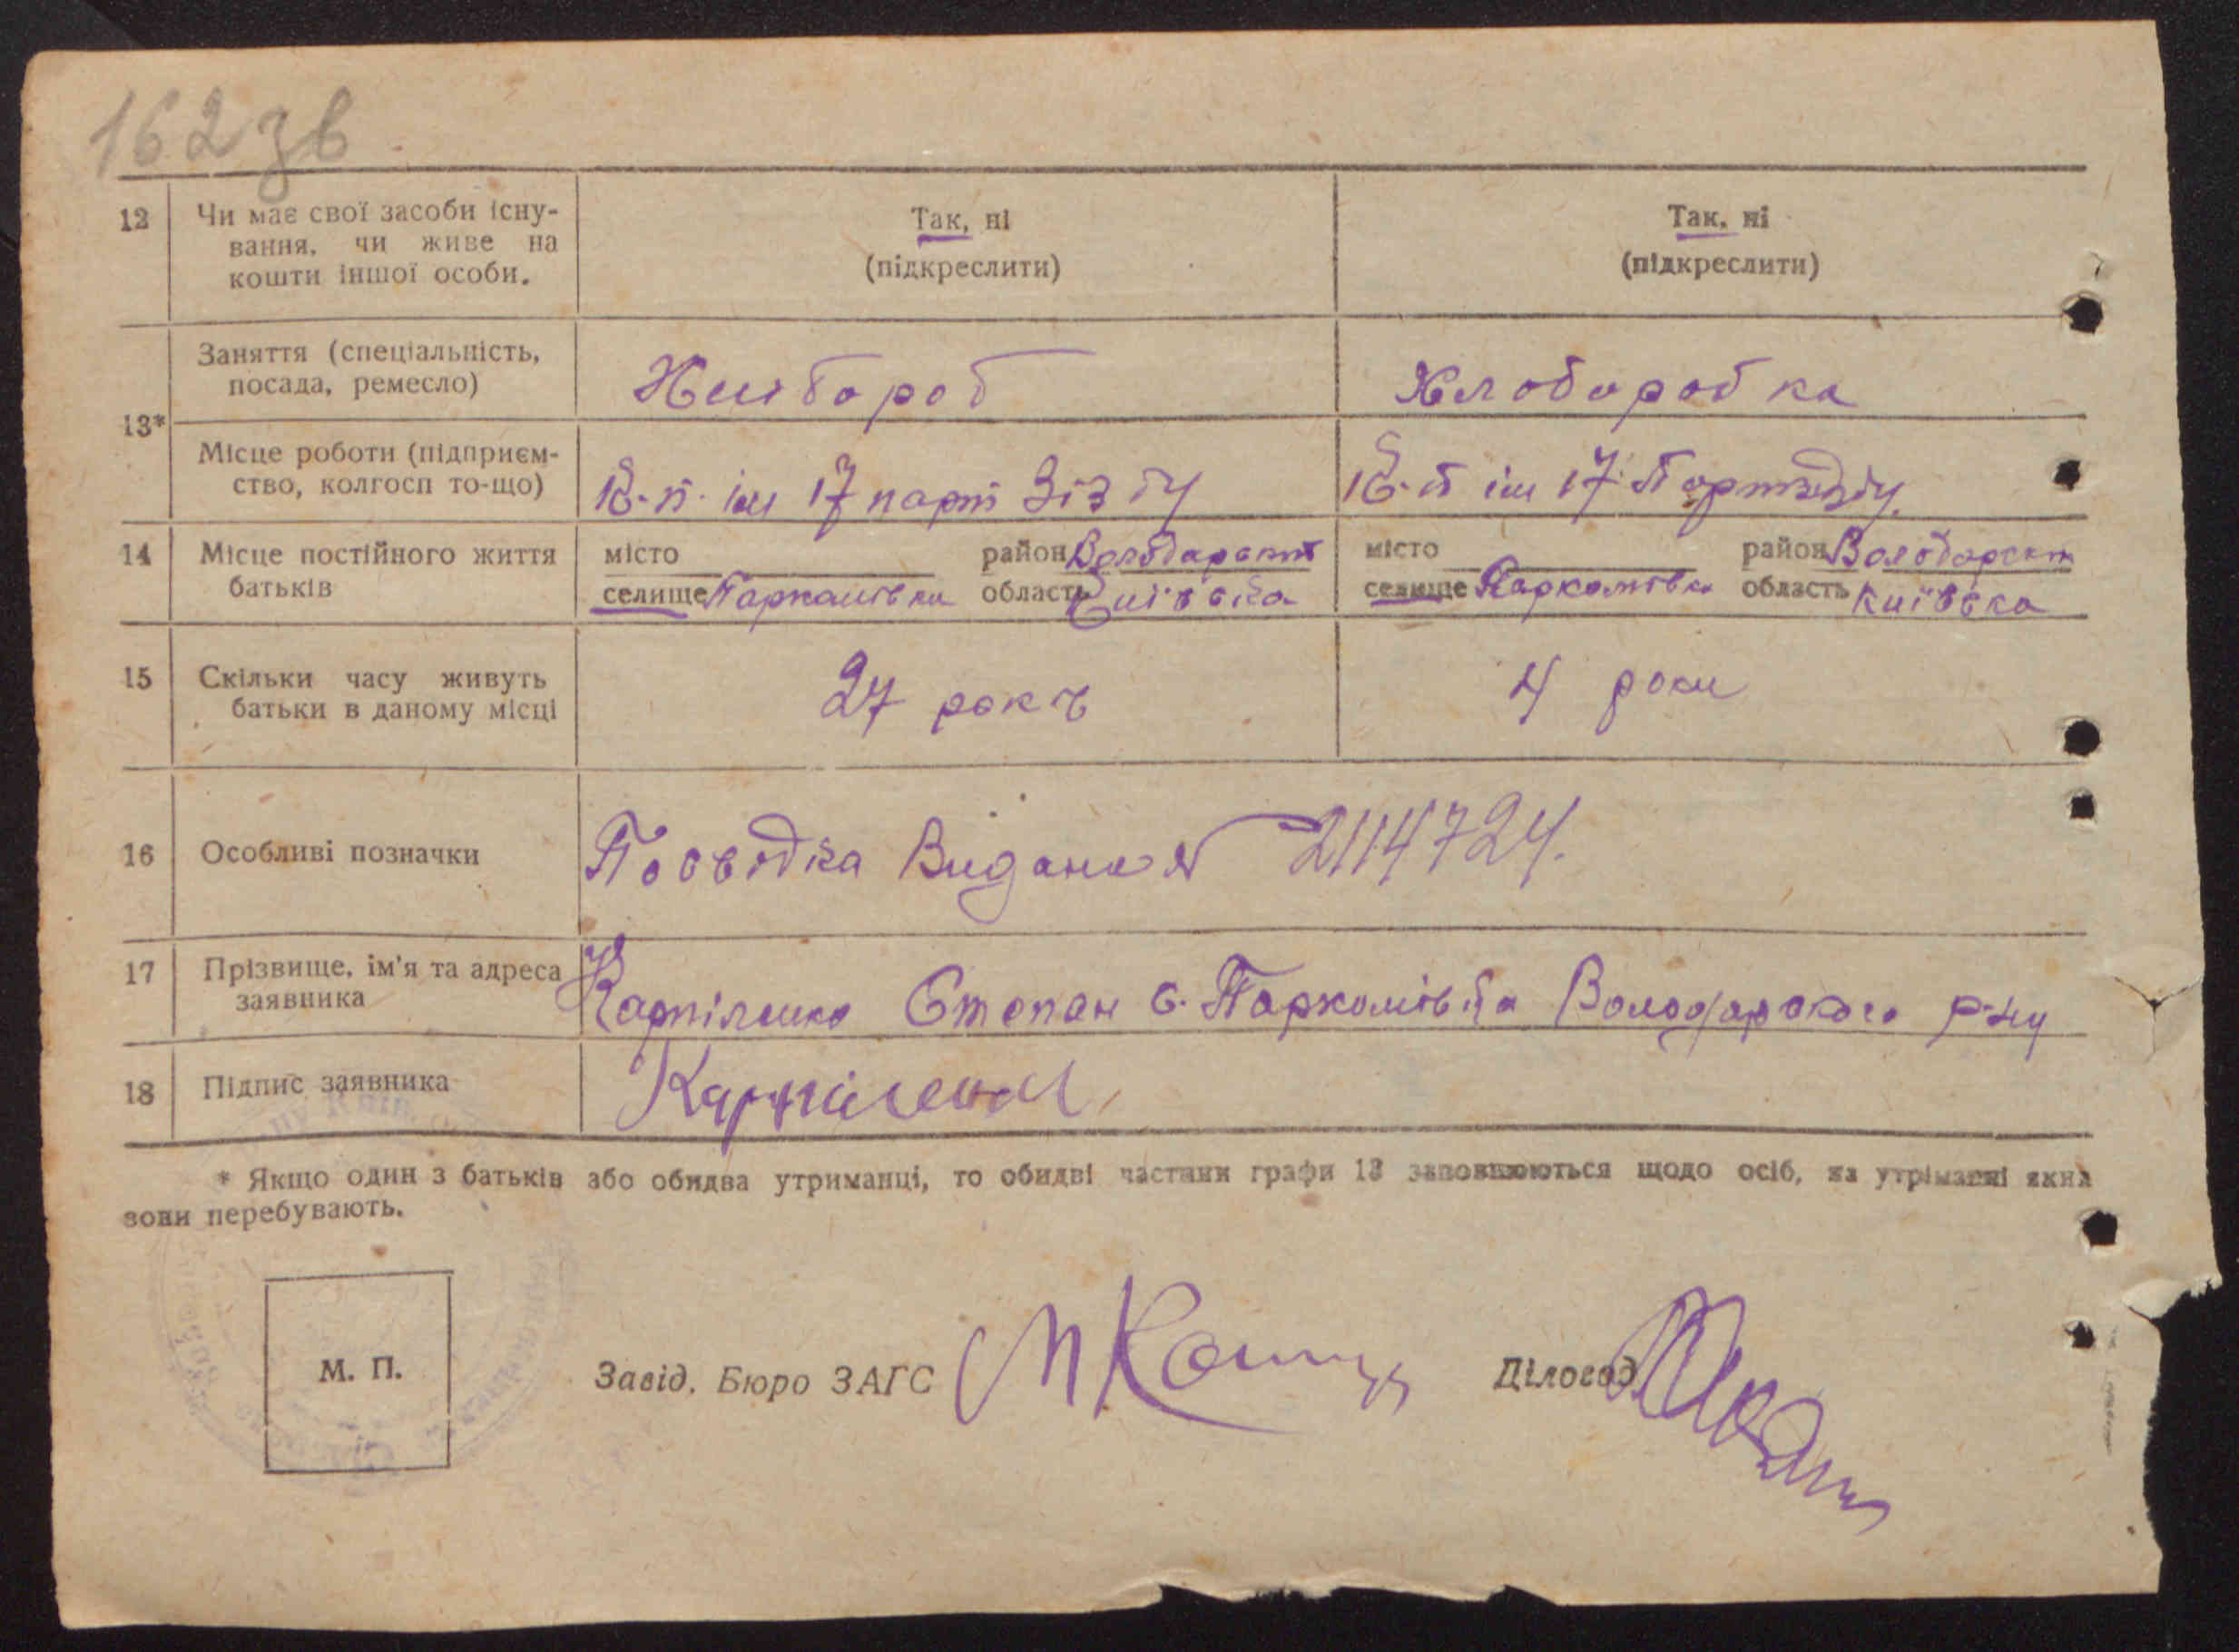 162 зв
12 Чи має свої засоби існу- Так, ні Так, ні
вання, чи живе на (підкреслити) (підкреслити)
кошти іншої особи.
Заняття (спеціальність,
посада, ремесло) Хлібороб Хлоборобка
13*
Місце роботи (підприєм-
ство, колгосп то-що) К-п. ім 17 парт Зізду К-п ім 17 Партзізду.
14 Місце постійного життя місто район Володарськ місто район Володарськ
батьків селище Паркомівка область Київська селище Паркомівка область Київська
15 Скільки часу живуть 27 рокъ 4 роки
батьки в даному місці
16 Особливі позначки Посвідка Видана № 2114724.
17 Прізвище, ім'я та адреса
заявника Карпіленко Степан с. Паркомівка Володарского р-ну
18 Підпис заявника Карпіленко
* Якщо один з батьків або обидва утриманці, то обидві частини графи 13 заповнюються щодо осіб, на утріманні яких
вони перебувають.
М. П. Завід. Бюро ЗАГС Діловод